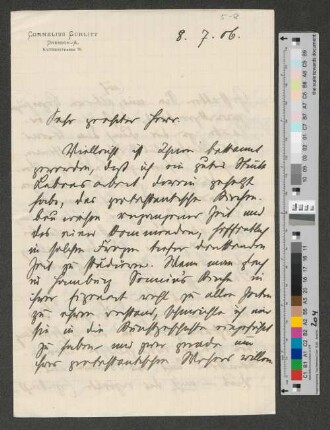 CORNELIUS GURLITT
DRESDEN-A.
8. 7. 06.
Sehr geehrter Herr.
Vielleicht ist Ihnen bekannt
geworden, daß ich ein gutes Stück
Lebensarbeit darein gesetzt
habe, das protestantische Kirchen-
bauwesen vergangener Zeit und
das einer kommenden, hoffentlich
in solchen Dingen tiefer denkenden
Zeit zu studieren. Wenn man gleich
in Hamburg Sonnins Kirche in
ihrer Eigenart wohl zu allen Zeiten
zu ehren verstand, schmeichle ich mir
sie in die Kunstgeschichte eingeführt
zu haben und zwar gerade um
ihres protestantischen Wesens willen
204